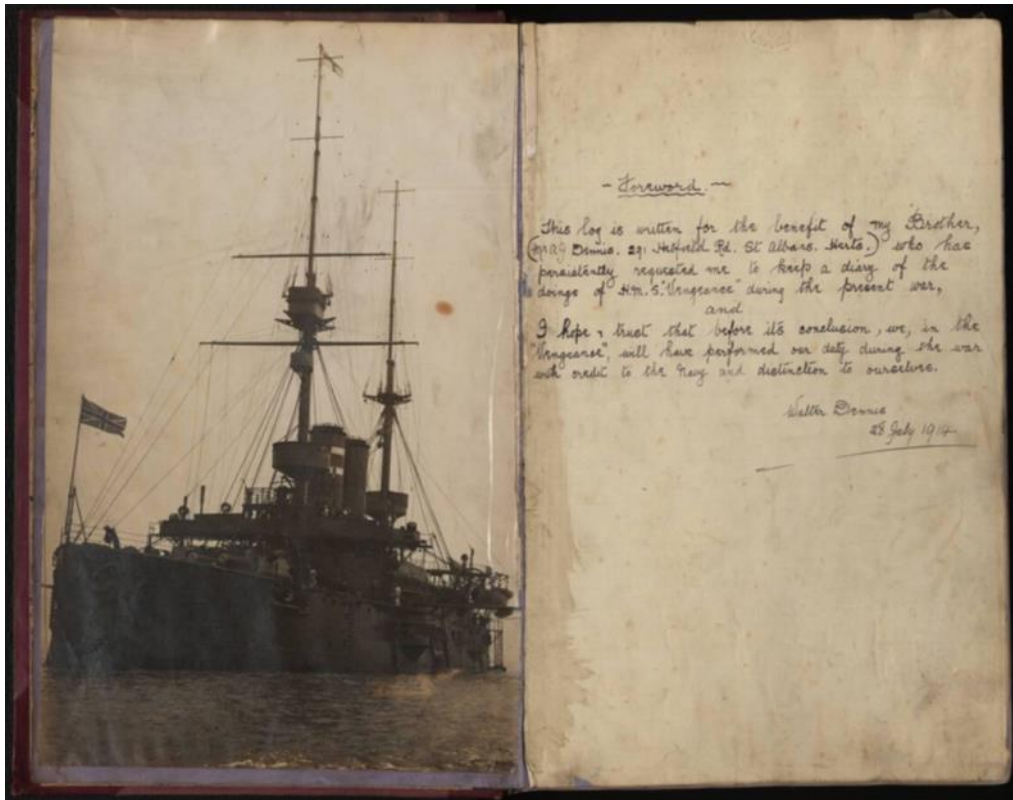 - Foreword. -
This log is written for the benefit of my Brother,
(Mr A J Dennis. 29, Hatfield Rd. St Albans. Herts.) who has
persistently requested me to keep a diary of the
doings of H.M.S. "Vengeance" during the present war,
and
I hope & trust that before its conclusion, we, in the
"Vengeance", will have performed our duty during the war
with credit to the Navy and distinction to ourselves.
Walter Dennis
28 July 1914